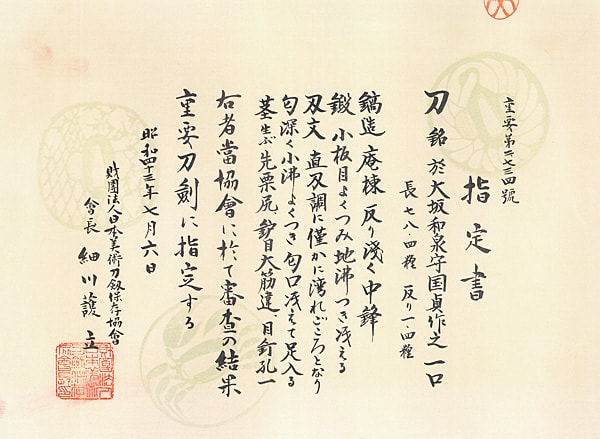 重要第一七三四號
指定書
刀 銘 於大坂和泉守国貞作之 一口
長 七八・四糎 反り 一・四糎
鎬造 庵棟 反り浅く中鋒
鍛 小板目よくつみ地沸つき冴える
刃文 直刃調に僅かに湾れごころとなり
匂深く小沸よくつき匂口冴えて足入る
茎 生ぶ 先栗尻、鑢目大筋違、目釘孔一
右者當協會に於て審査の結果
重要刀剣に指定する
昭和四十三年七月六日
財團法人日本美術刀剱保存協會
會長 細川護立